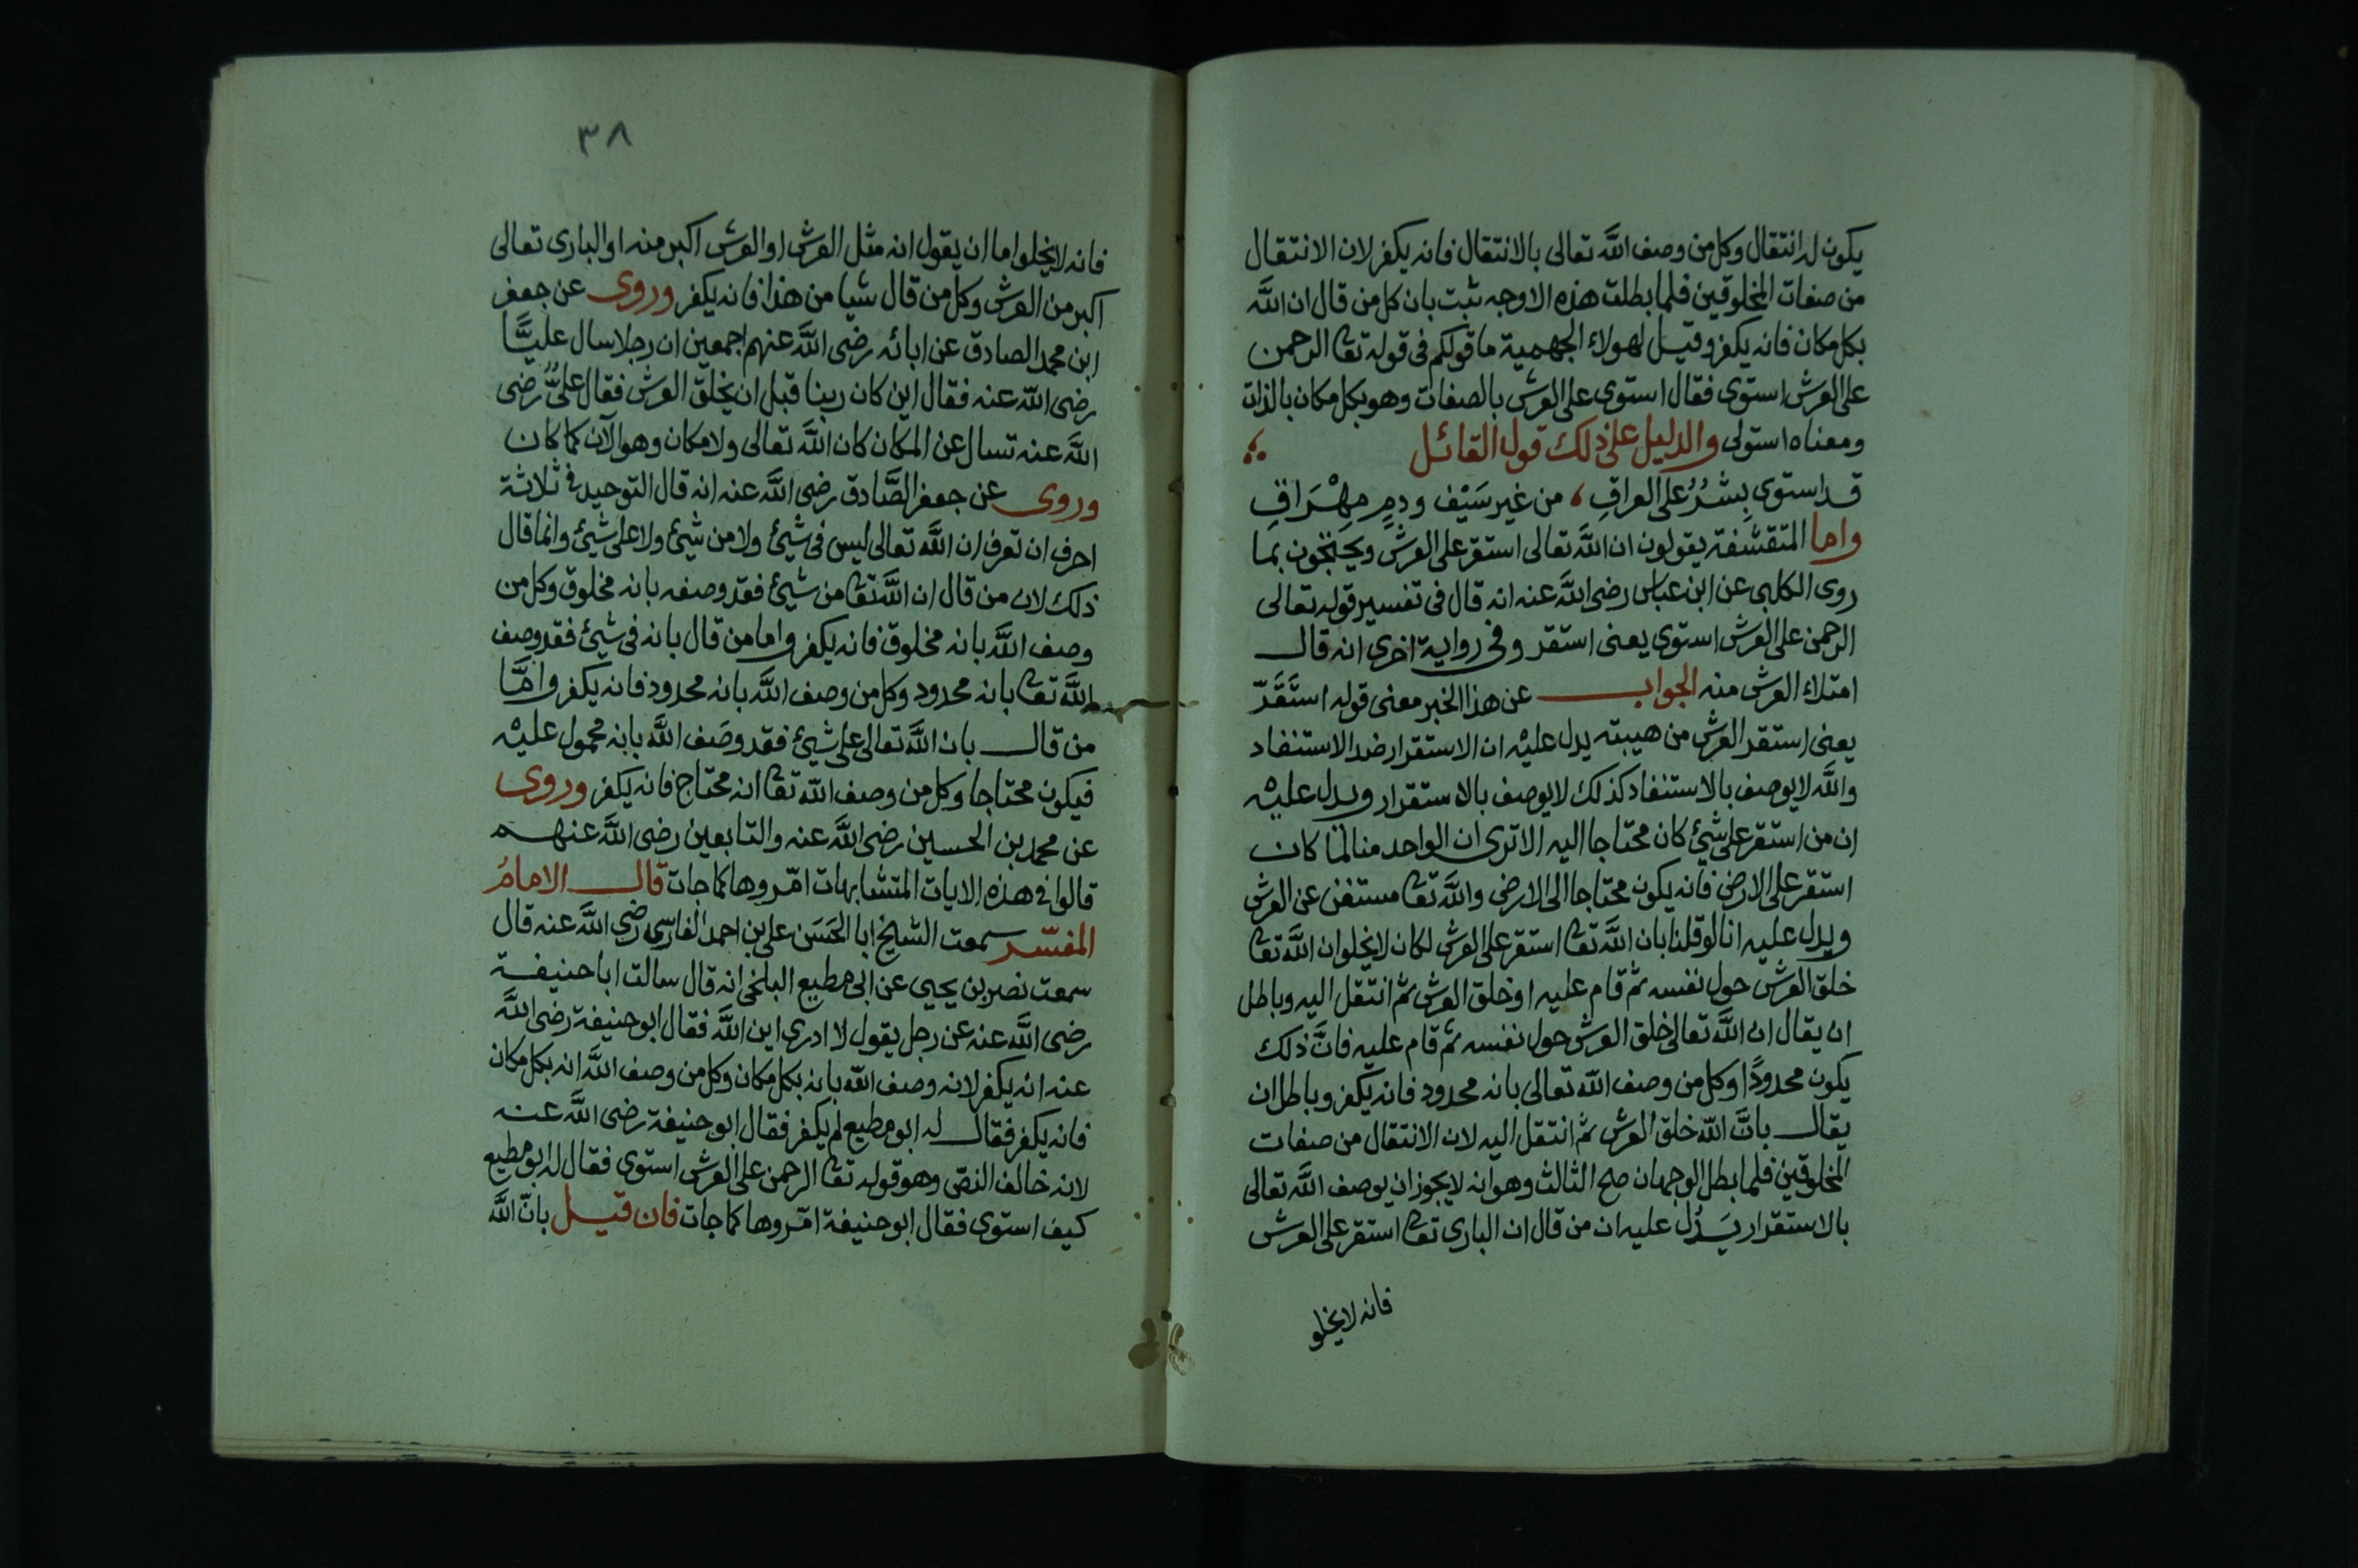 يكون له انتقال وكل من وصف الله تعالى بالانتقال فانه يكفر لان الانتقال
من صفات المخلوقين فلما بطلت هذه الاوجه ثبت بان كل من قال ان الله
بكل مكان فانه يكفر وقيل لهولاء الجهمية ما قولكم في قوله تعا الرحمن
على العرش استوى فقال استوى على العرش بالصفات وهو بكل مكان بالذات
ومعناه استولى والدليل على ذلك قول القائل
قد استوى بِشْرُ على العراقِ من غير سَيْف ودمٍ مِهْرَاقِ
واما المتقشفة يقولون ان الله تعالى استقر على العرش ويحتجّون بما
روى الكلبى عن ابن عباس رضى الله عنه انه قال فى تفسير قوله تعالى
الرحمن على العرش استوى يعنى استقر وفى رواية اخرى انه قال
امتلاء العرش منه الجواب عن هذا الخبر معنى قوله استَقَرّ
يعنى استقر العرش من هيبته يدل عليْه ان الاستقرار ضد الاستنفاد
والله لا يوصف بالاستنفاد كذلك لا يوصف بالاستقرار ويدل عليْه
ان من استقر على شيئ كان محتاجا اليه الا ترى ان الواحد منا لما كان
استقر على الارض فانه يكون محتاجا الى الارض والله تعا مستغن عن العرش
ويدل عليه انا لو قلنا بان الله تعا استقر على العرش لكان لا يخلو ان الله تعا
خلق العرش حول نفسه ثم قام عليه او خلق العرش ثم انتقل اليه وباطل
ان يقال ان الله تعالى خلق العرش حول نفسه ثم قام عليه فانَّ ذلك
يكون محدودًا وكل من وصف الله تعالى بانه محدود فانه يكفر وباطل ان
يقال بانَّ الله خلق العرش ثم انتقل اليه لان الانتقال من صفات
المخلوقين فلما بطل الوجهان صح الثالث وهو انه لا يجوز ان يوصف الله تعالى
بالاستقرار يَدُل عليه ان من قال ان البارى تعا استقر على العرش
فانه لا يخلو
٣٨
فانه لا يخلوا اما ان يقول انه مثل العرش او العرش اكبر منه او البارى تعالى
اكبر من العرش وكل من قال شيا من هذا فانه يكفر وروى عن جعفر
ابن محمد الصادق عن ابائه رضى الله عنهم اجمعين ان رجلا سال عليًّا
رضى الله عنه فقال اين كان ربنا قبل ان يخلق العرش فقال علىٌّ رضى
الله عنه تسال عن المكان كان الله تعالى ولا مكان وهو الآن كما كان
وروى عن جعفر الصَّادق رضى الله عنه انه قال التوحيد فى ثلاثة
احرف ان تعرف ان الله تعالى ليس فى شيئ ولا من شيئ ولا على شيئ وانما قال
ذلك لان من قال ان الله تعا من شيئ فقد وصفه بانه مخلوق وكل من
وصف الله بانه مخلوق فانه يكفر واما من قال بانه فى شيئ فقد وصف
الله تعا بانه محدود وكل من وصف الله بانه محدود فانه يكفر وامَّا
من قال بان الله تعالى على شيئ فقد وصَف الله بانه محمول عليْه
فيكون محتاجا وكل من وصف الله تعا انه محتاج فانه يكفر وروى
عن محمد بن الحسين رضى الله عنه والتابعين رضى الله عنهم
قالوا فى هذه الايات المتشابهات امّروها كما جات قال الامامُ
المفسّر سمعت الشيخ ابا الحَسَن على بن احمد الفارسى رضى الله عنه قال
سمعت نصير بن يحيى عن ابى مطيع البلخى انه قال سالت ابا حنيفة
رضى الله عنه عن رجل يقول لا ادرى اين الله فقال ابو حنيفة رضى الله
عنه انه يكفر لانه وصف الله بانه بكل مكان وكل من وصف الله انه بكل مكان
فانه يكفر فقال له ابو مطيع لم يكفر فقال ابو حنيفة رضى الله عنه
لانه خالف النص وهو قوله تعا الرحمن على العرش استوى فقال له ابو مطيع
كيف استوى فقال ابو حنيفة امّروها كما جات فان قيل بانّ الله